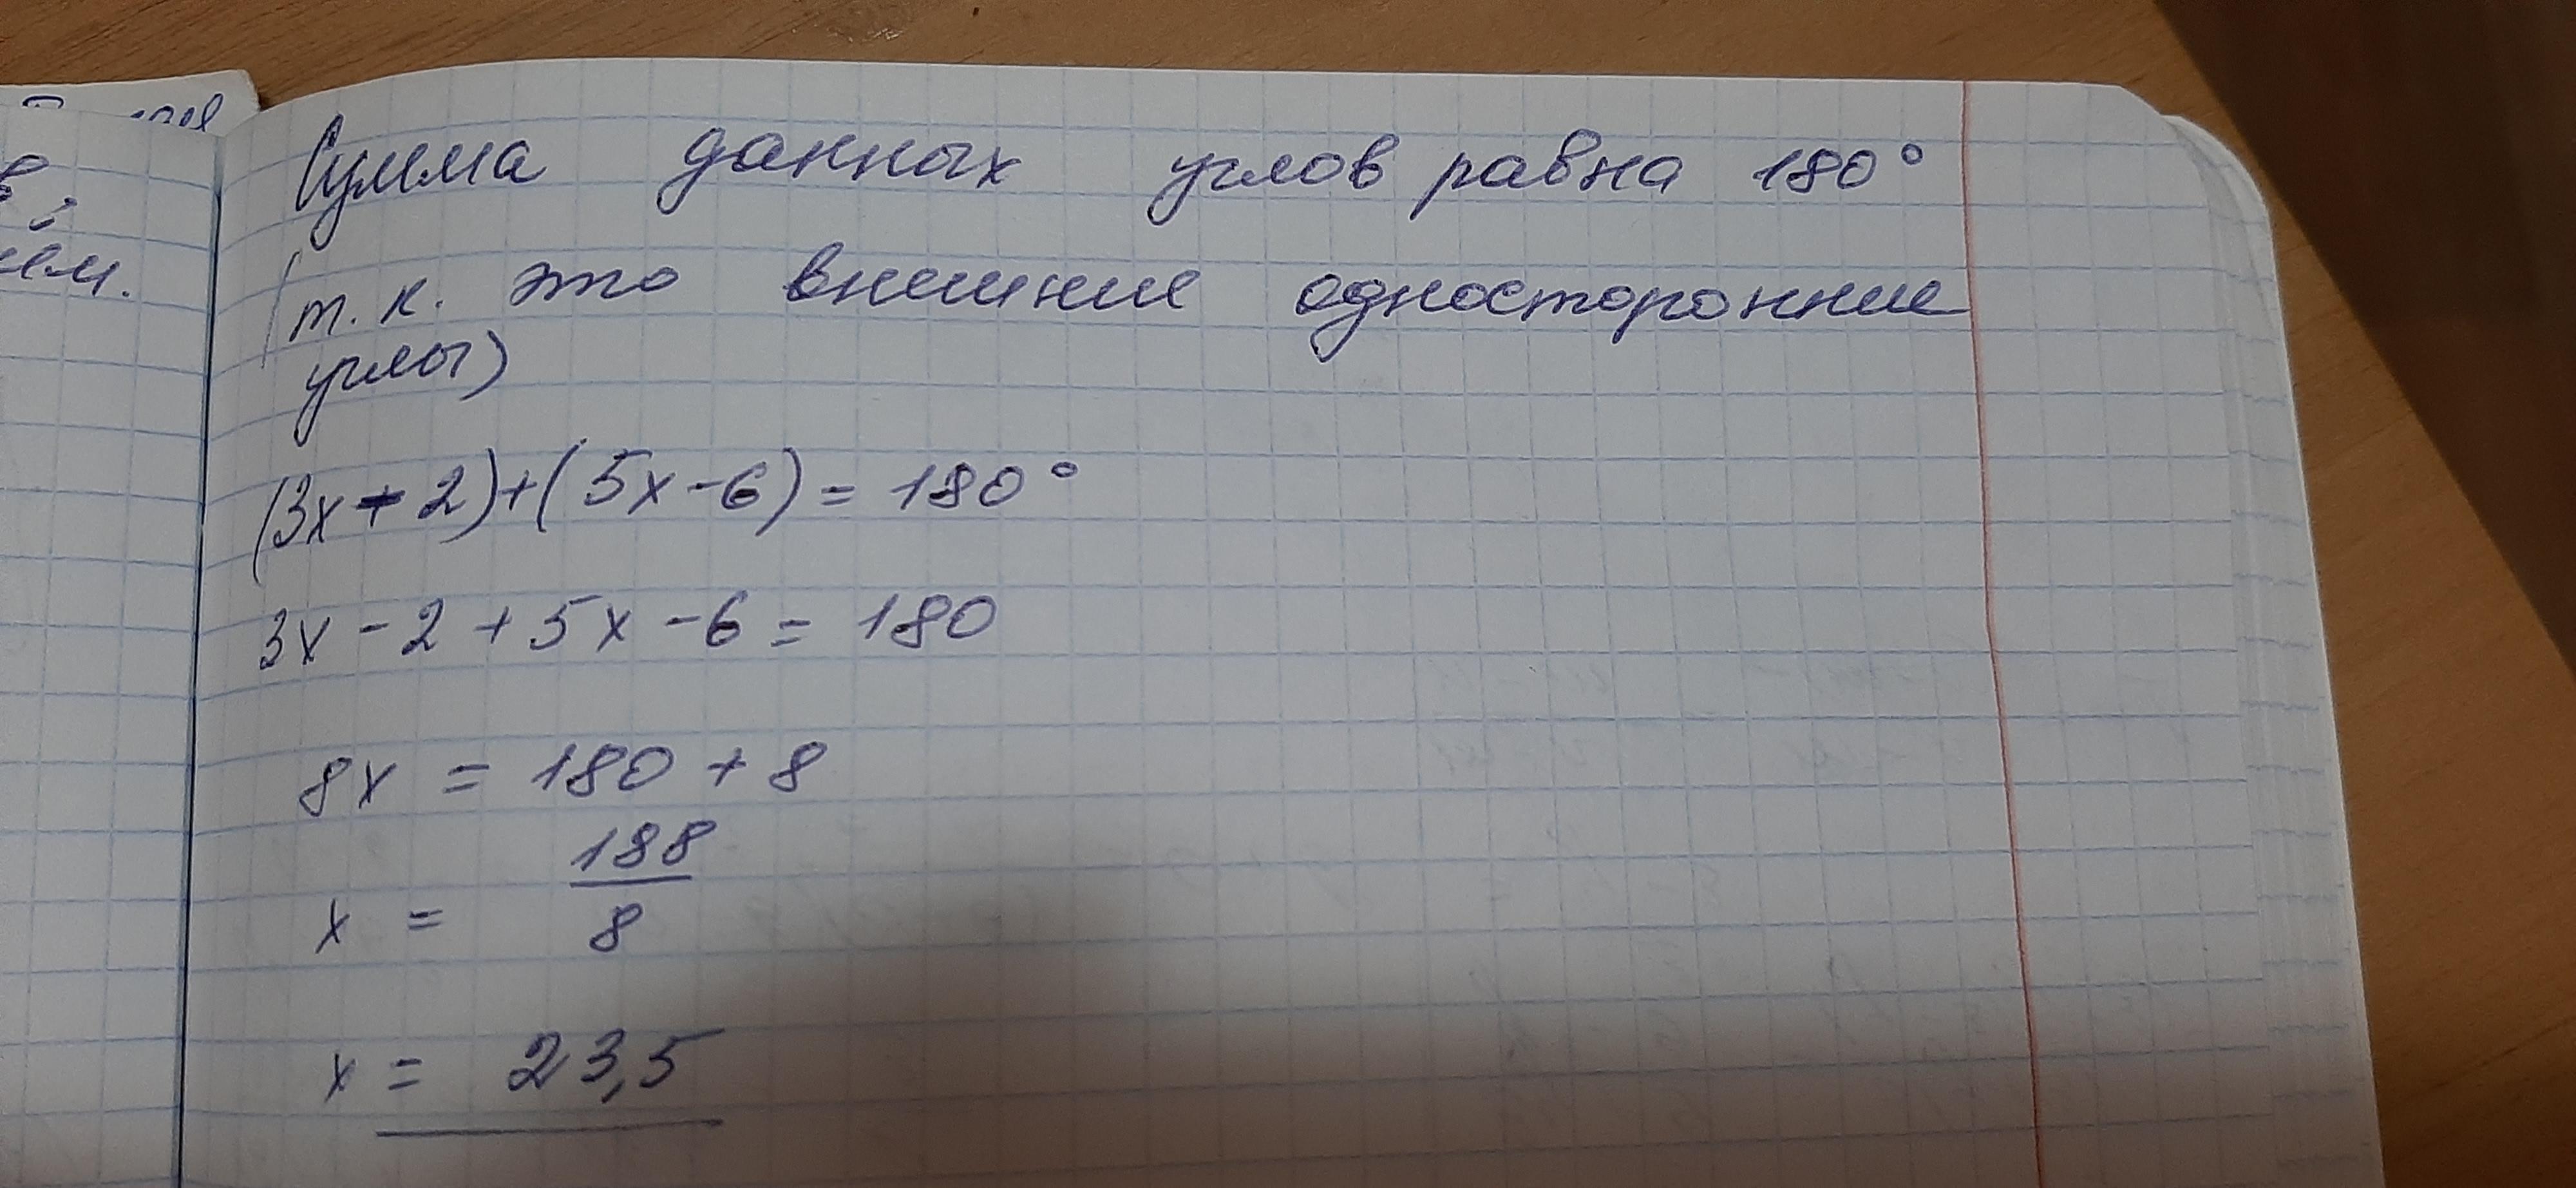 Сумма данных углов равна 180°
(т. к. это внешние односторонние
углы)
(3x - 2) + (5x - 6) = 180°
3x - 2 + 5x - 6 = 180
8x = 180 + 8
x = 188/8
x = 23,5